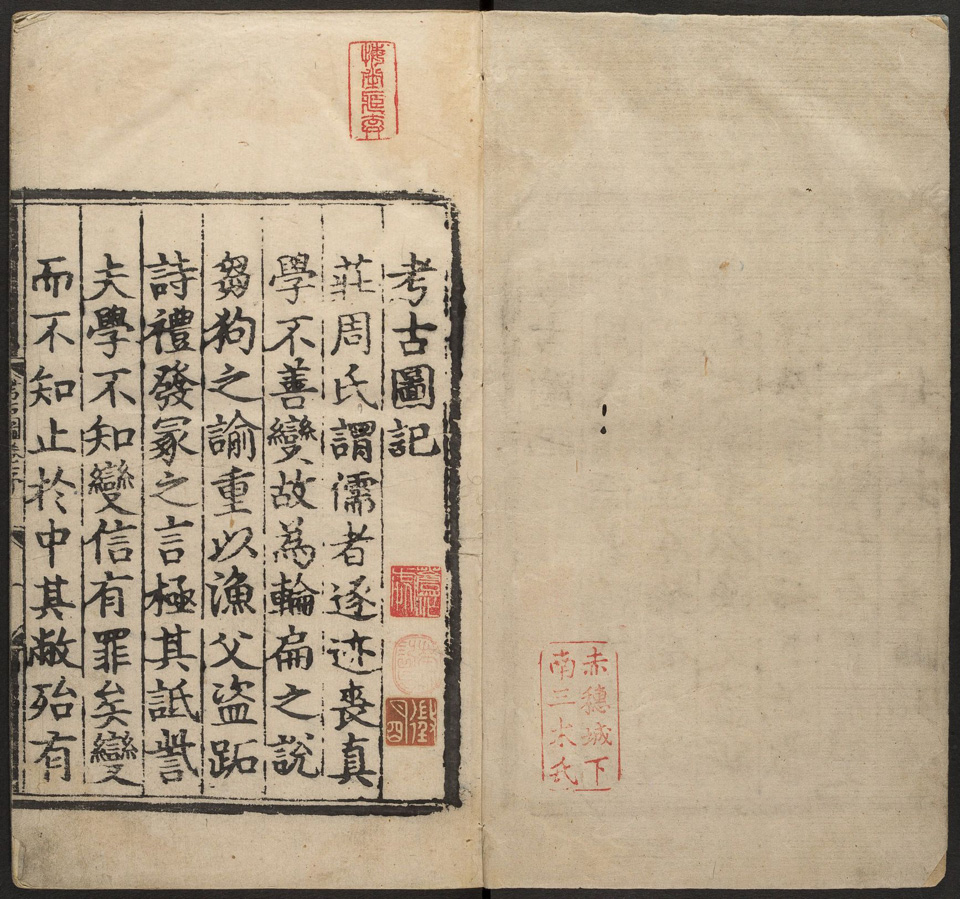 赤穗城下
南三木氏
考古圖記
莊周氏謂儒者逐迹喪真
學不善變故為輪扁之說
芻狗之諭重以漁父盜跖
詩禮發冢之言極其詆訾
夫學不知變信有罪矣變
而不知止於中其敝殆有